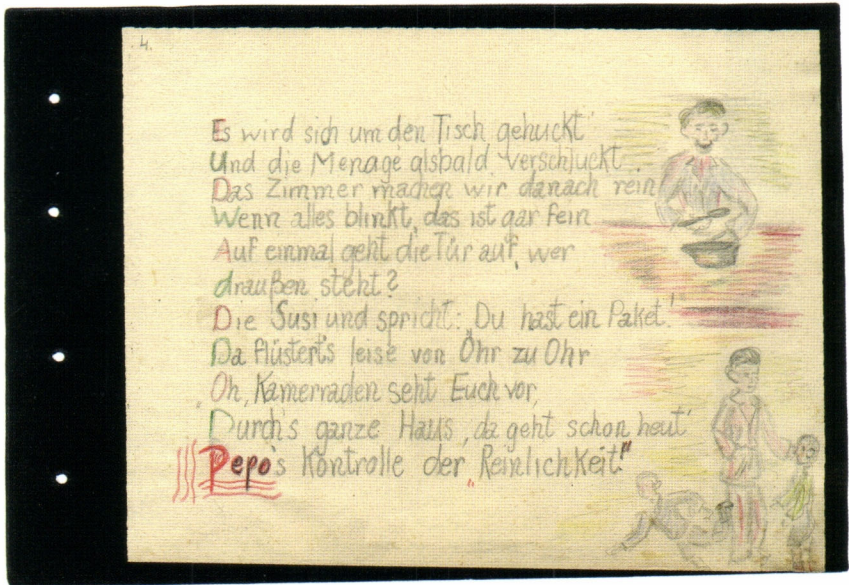 4.
Es wird sich um den Tisch gehuckt
Und die Menage alsbald verschluckt
Das Zimmer machen wir danach rein
Wenn alles blinkt, das ist gar fein
Auf einmal geht die Tür auf, wer
draußen steht?
Die Susi und spricht: „Du hast ein Paket!
Da flüstert's leise von Ohr zu Ohr
Oh, Kamerraden seht Euch vor,
Durch's ganze Haus, da geht schon heut'
Pepo's Kontrolle der „Reinlichkeit!"